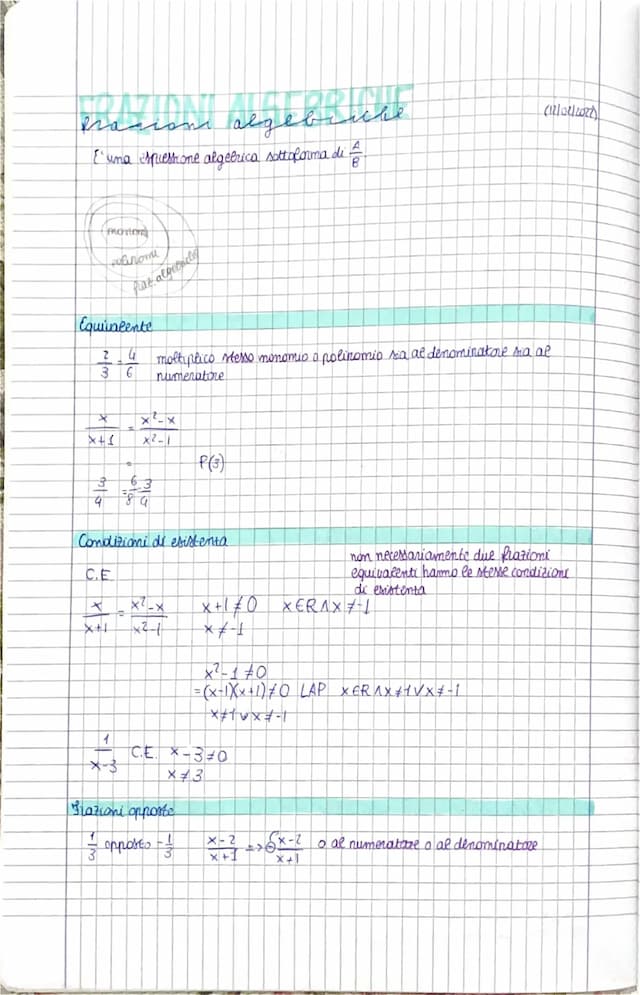 FRAZIONI ALGEBRICHE
Frazioni algebriche
E' una espressione algebrica sottoforma di A/B
monomi
polinomi
fraz. algebriche
Equivalente
2/3 = 4/6 moltiplico stesso monomio o polinomio sia al denominatore sia al
numeratore
x/(x+1) = (x²-x)/(x²-1)
= P(3)
3/4 = 6/8 3/4
Condizioni di esistenza
non necessariamente due frazioni
equivalenti hanno le stesse condizioni
di esistenza
C.E.
x/(x+1) = (x²-x)/(x²-1) x+1≠0 x∈R∧x≠-1
x≠-1
x²-1≠0
=(x-1)(x+1)≠0 LAP x∈R∧x≠1∨x≠-1
x≠1∨x≠-1
1/(x-3) C.E. x-3≠0
x≠3
Frazioni opposte
1/3 opposto -1/3 (x-2)/(x+1) => ⊖(x-2)/(x+1) o al numeratore o al denominatore